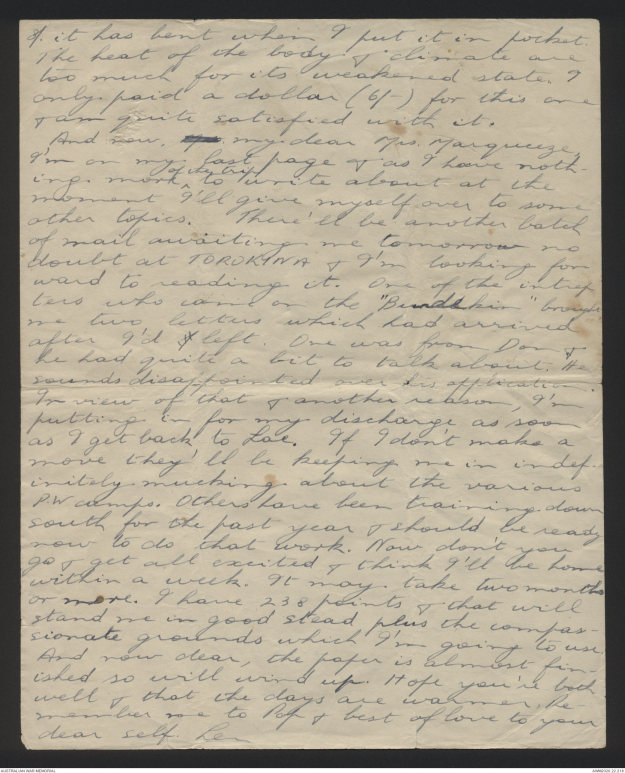 it has bent when I put it in pocket.
The heat of the body & climate are
too much for its weakened state. I
only paid a dollar (6/-) for this one
& am quite satisfied with it.
And now, my dear Mrs. Marqueeze,
I'm on my last page & as I have noth-
ing more of the trip to write about at the
moment I'll give myself over to some
other topics. There'll be another batch
of mail awaiting me tomorrow no
doubt at TOROKINA & I'm looking for
ward to reading it. One of the interp
ters who came on the "Burdekin" brought
me two letters which had arrived
after I'd left. One was from Don &
he had quite a bit to talk about. He
sounds disappointed over his application.
In view of that & another reason, I'm
putting in for my discharge as soon
as I get back to Lae. If I don't make a
move they'll be keeping me in indef-
initely mucking about the various
P.W camps. Others have been training down
south for the past year & should be ready
now to do that work. Now don't you
go & get all excited & think I'll be home
within a week. It may take two months
or more. I have 238 points & that will
stand me in good stead plus the compas-
sionate grounds which I'm going to use.
And now dear, the paper is almost fin-
ished so will wind up. Hope you're both
well & that the days are warmer. Re-
member me to Pop & best of love to your
dear self. Len
AUSTRALIAN WAR MEMORIAL